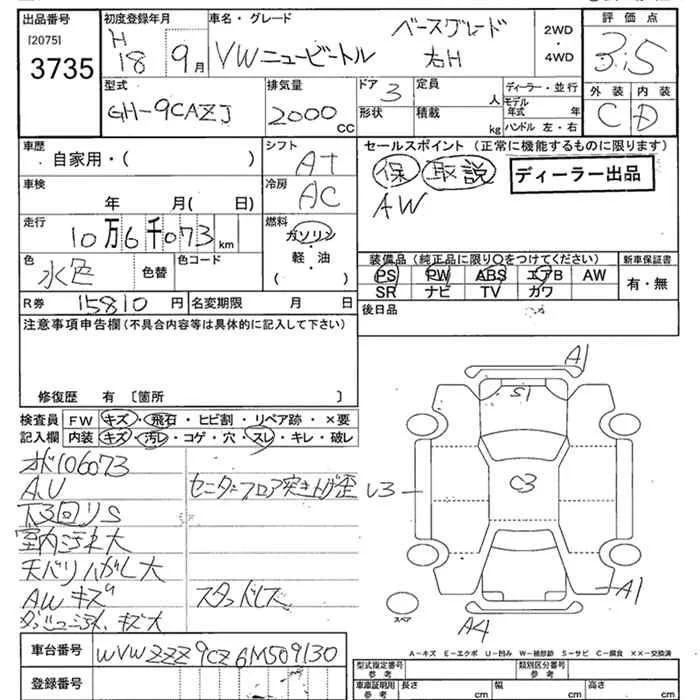 出品番号 初度登録年月 車名・グレード 評価点
[2075] H ベースグレード 2WD
3735 18 9月 VWニュービートル 右H ・ 3.5
4WD
型式 排気量 ドア 3 定員 人 ディーラー・並行 外装 内装
GH-9CAZJ 2000 CC 形状 積載 kg モデル年式 年 C D
ハンドル 左・右
車歴 シフト セールスポイント (正常に機能するものに限ります)
自家用・( ) AT 保 取説 ディーラー出品
車検 冷房 AW
年 月( 日) AC
走行 燃料
10万6千073km ガソリン
色 色替 色コード 軽・油 装備品 (純正品に限り○をつけてください) 新車保証書
水色 ( ) PS PW ABS エアB AW 有・無
R券 15810円 名変期限 月 日 SR ナビ TV カワ
注意事項申告欄 (不具合内容等は具体的に記入して下さい) 後日品
修復歴 有 〔箇所 〕
検査員 FW キズ・飛石・ヒビ割・リペア跡・×要
記入欄 内装 キズ・汚レ・コゲ・穴・スレ・キレ・破レ
オド106073
A,U センターフロア突き上げ歪
下3回りS
室内汚れ大
天バリハガレ大
AWキズ スタッドレス
キズ大
A1
S1
U3
C3
A1
A4
スペア
A-キズ E-エクボ U-凹ミ W-補修跡 S-サビ C-腐食 ××-交換済
車台番号 WVWZZZ9CZ6M509130
登録番号
型式指定番号 参考 類別区分番号 参考
車庫証明用 参考 長さ cm 幅 cm 高さ cm